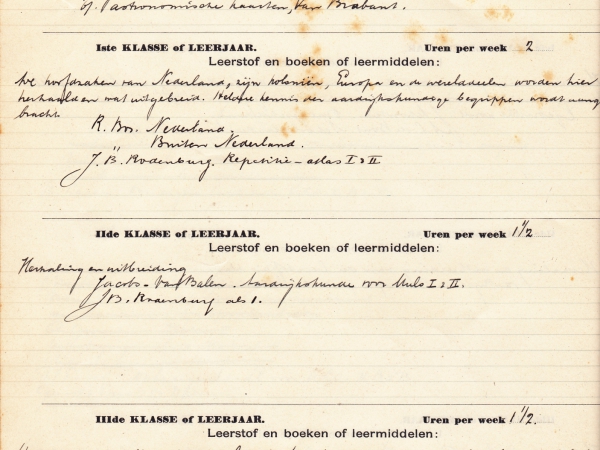 of Pastronomische kaarten, van Brabant.
Iste KLASSE of LEERJAAR. Uren per week 2
Leerstof en boeken of leermiddelen:
De hoofdzaken van Nederland, zijn koloniën, Europa en de werelddeelen worden hier
herhaald en wat uitgebreid. Heldere kennis der aardrijkskundige begrippen wordt aange
bracht.
R. Bos. Nederland.
" Buiten Nederland.
J. B. Rodenburg. Repetitie-atlas I & II
IIde KLASSE of LEERJAAR. Uren per week 1 1/2
Leerstof en boeken of leermiddelen:
Herhaling en uitbreiding
Jacobs - Van Balen. Aardrijkskunde voor Mulo I & II.
J. B. Rodenburg als 1.
IIIde KLASSE of LEERJAAR. Uren per week 1 1/2.
Leerstof en boeken of leermiddelen: